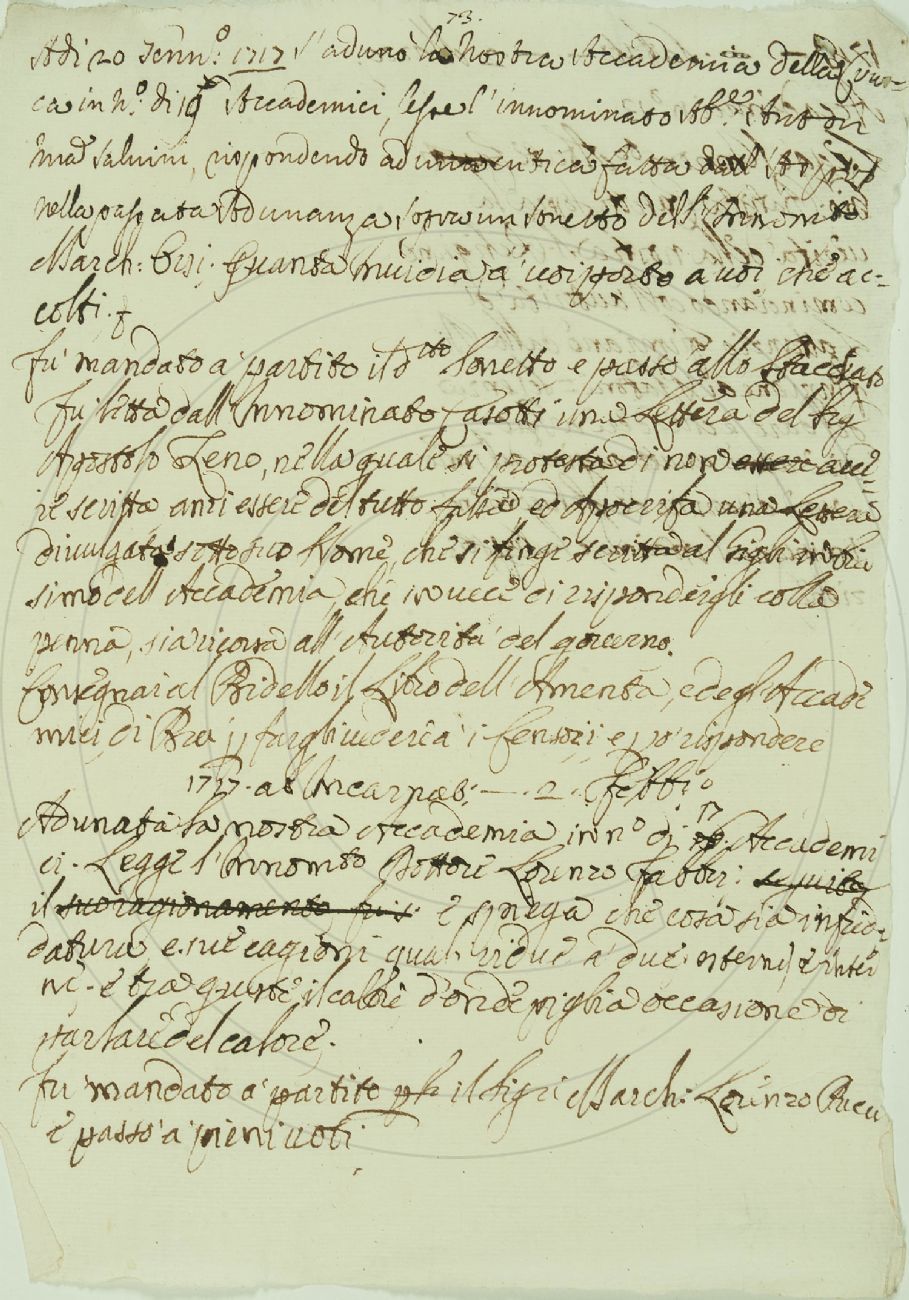 73.
Adi 20 Genn.º 1717 s'adunò la nostra Accademia della Crus-
ca in N.º di 19 Accademici, lesse l'innominato Ab.e Anton
Ma.ª Salvini, rispondendo ad una critica fatta dall'
nella passata Adunanza sovra un sonetto dell' Innom.to
March: Orsi. Quanta invidia a' voi porto a voi che ac-
colti.
Fù mandato à partito il d.cto Sonetto e passò allo Stacciato
Fu letta dall'Innominato Casotti una Lettera del Sig
Apostolo Zeno, nella quale si protesta di non essere aver
ne scritta anzi essere del tutto falsa ed Apocrifa una Lettera
divulgata sotto suo Nome, che si finge scritta al Sigli
simo dell Accademia, che in vece di rispondergli colla
penna, sia ricorsa all'Autorità del governo.
Consegnai al Bidello il Libro dell'Amenta, e degl'Accade
mici di Bra p fargli vedere a' i Censori, e po rispondere
1717. ab Incarnat.: —. 2. Febbr.º
Adunata la nostra Accademia in nº di 17 Accademi
ci. Legge l'Innom.to Dottore Lorenzo Fabbri: seguita
il suo ragionamento fuis. e spiega che cosa sia infred-
datura e sue cagioni qual riduce a' due esterni, e inter
ne. e tra queste il calore d'onde piglia occasione di
parlare del calore.
Fu mandato a' partito p la il Sigr: March: Lorenzo Pucci
e passò a' pieni voti